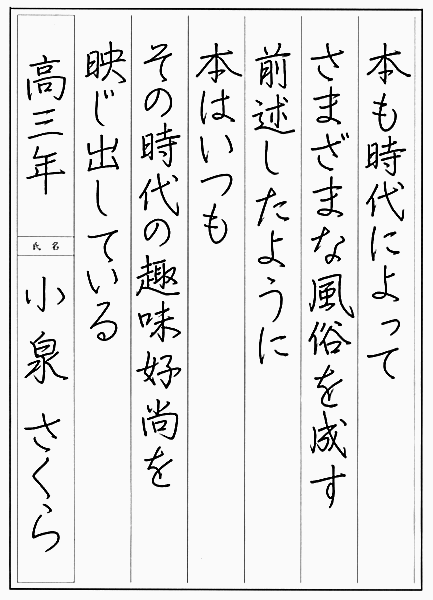 本も時代によって
さまざまな風俗を成す
前述したように
本はいつも
その時代の趣味好尚を
映じ出している
高三年
氏名
小泉さくら